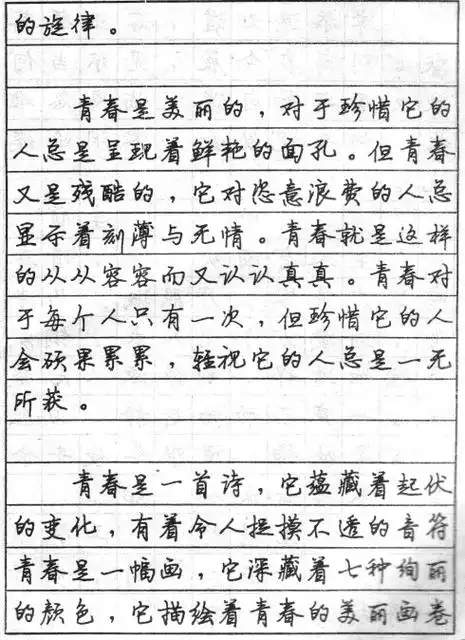 的旋律。
青春是美丽的，对于珍惜它的
人总是呈现着鲜艳的面孔。但青春
又是残酷的，它对恣意浪费的人总
显示着刻薄与无情。青春就是这样
的从从容容而又认认真真。青春对
于每个人只有一次，但珍惜它的人
会硕果累累，轻视它的人总是一无
所获。
青春是一首诗，它蕴藏着起伏
的变化，有着令人捉摸不透的音符
青春是一幅画，它深藏着七种绚丽
的颜色，它描绘着青春的美丽画卷